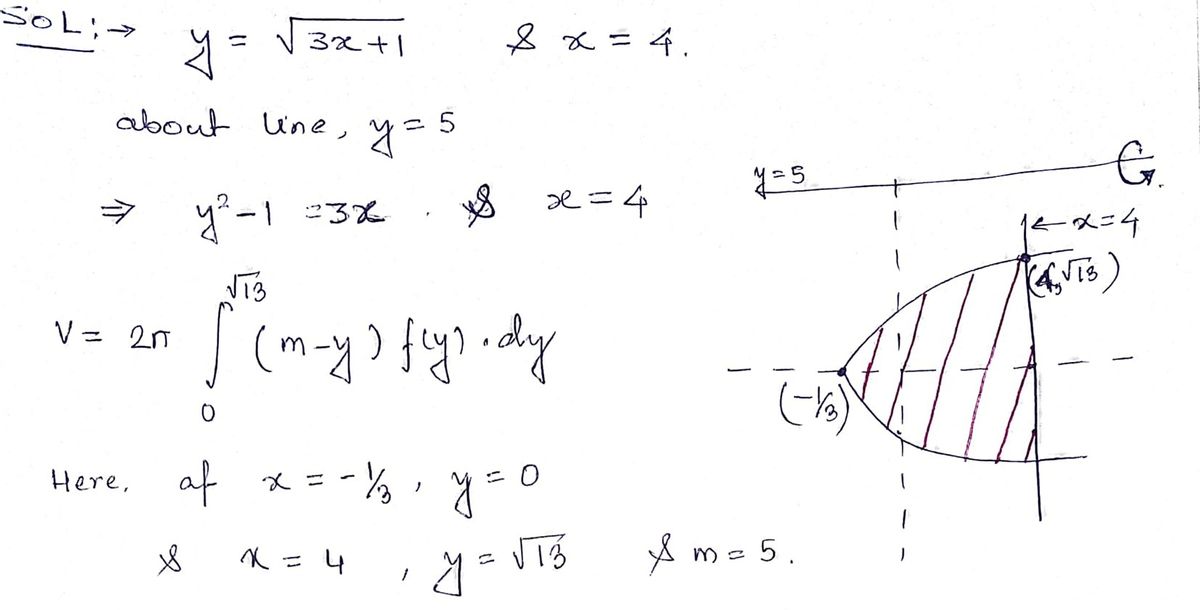 SOL:→ y = √3x+1 & x = 4.
about line, y = 5
⇒ y²-1 = 3x . & x = 4
V = 2π ∫₀^√13 (m-y) f(y) . dy
Here, at x = -⅓, y = 0
& x = 4 , y = √13 & m = 5.
y=5
←x=4
(4,√13)
(-⅓)